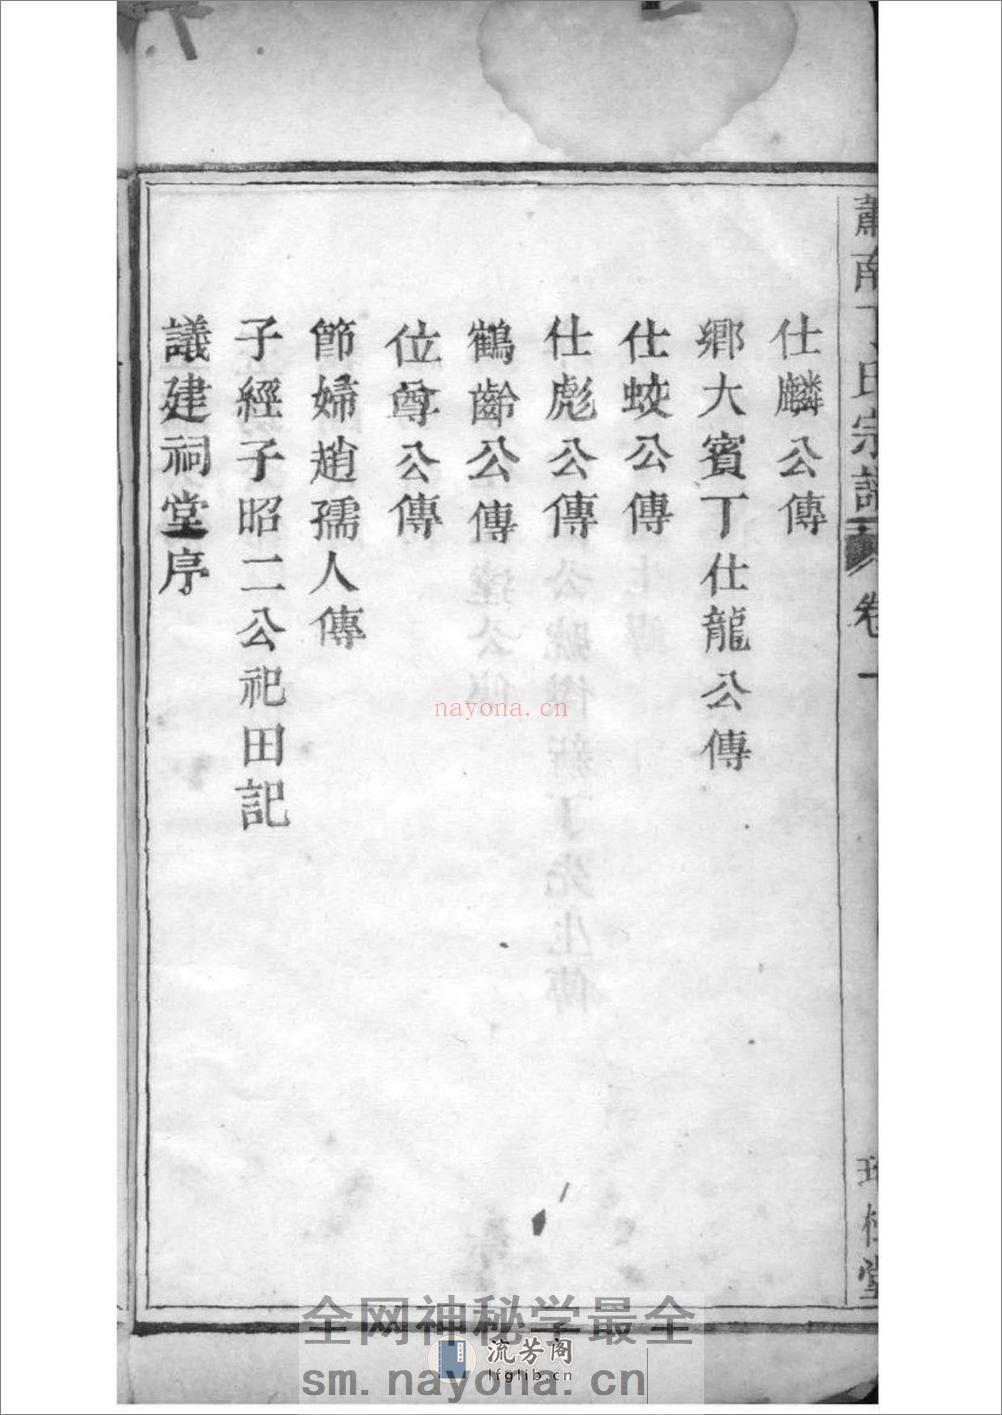 蕭南丁氏宗譜 卷一
仕麟公傳
鄉大賓丁仕龍公傳
仕蛟公傳
仕彪公傳
鶴齡公傳
位尊公傳
節婦趙孺人傳
子經子昭二公祀田記
議建祠堂序
桂堂
nayona.cn
全网神秘学最全
流芳阁
lfglib.cn
sm.nayona.cn